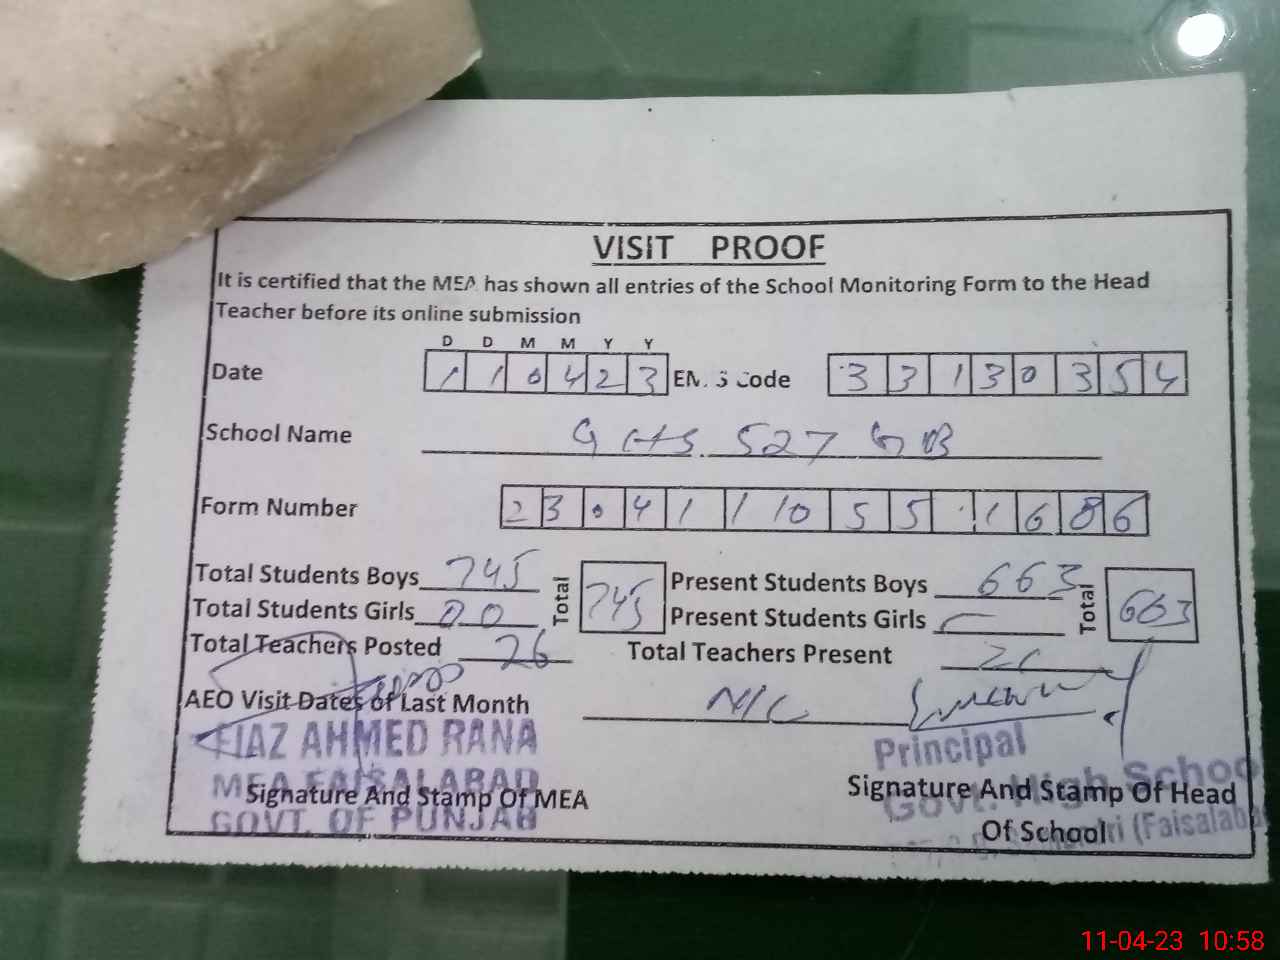 VISIT PROOF
It is certified that the MEA has shown all entries of the School Monitoring Form to the Head
Teacher before its online submission
D D M M Y Y
Date 1 1 0 4 2 3 EMIS Code 3 3 1 3 0 3 5 4
School Name GHS 527 GB
Form Number 2 3 0 4 1 1 10 5 5 1 6 8 6
Total Students Boys 745 Total 745 Present Students Boys 663 Total 663
Total Students Girls 00 Present Students Girls –
Total Teachers Posted 26 Total Teachers Present
AEO Visit Dates of Last Month
FIAZ AHMED RANA
MEA FAISALABAD
GOVT. OF PUNJAB
Signature And Stamp Of MEA
Principal
Govt. High School
(Faisalabad
Signature And Stamp Of Head
Of School
11-04-23 10:58